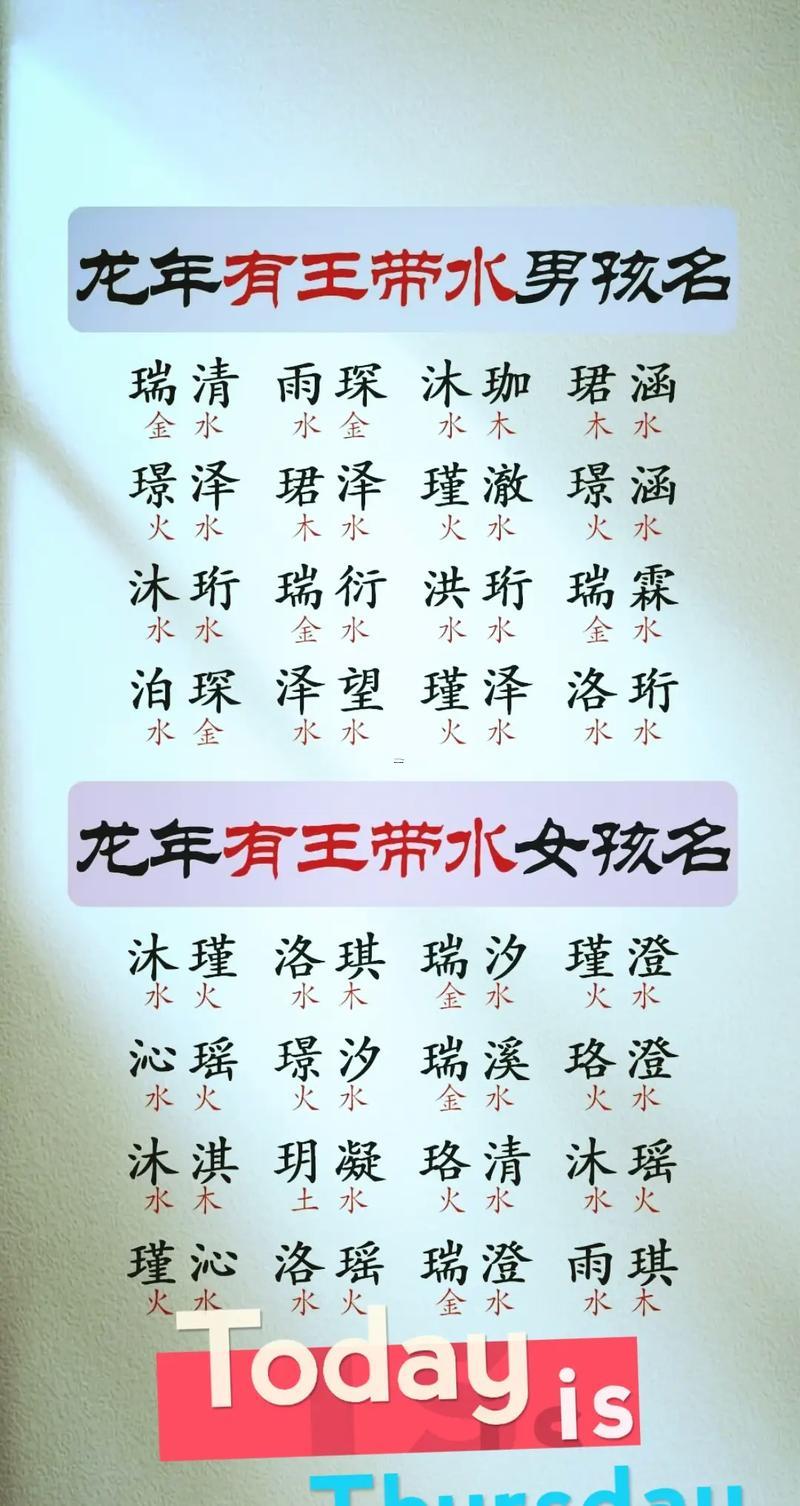 龙年有王带水男孩名
瑞清 雨琛 沐珈 珺涵
金水 水金 水木 木水
璟泽 珺泽 瑾澈 璟涵
火水 木水 火水 火水
沐珩 瑞衍 洪珩 瑞霖
水水 金水 水水 金水
泊琛 泽望 瑾泽 洛珩
水金 水水 火水 水水
龙年有王带水女孩名
沐瑾 洛琪 瑞汐 瑾澄
水火 水木 金水 火水
沁瑶 璟汐 瑞溪 珞澄
水火 火水 金水 火水
沐淇 玥凝 珞清 沐瑶
水木 土水 火水 水火
瑾沁 洛瑶 瑞澄 雨琪
火水 水火 金水 水木
Today is
Thursday